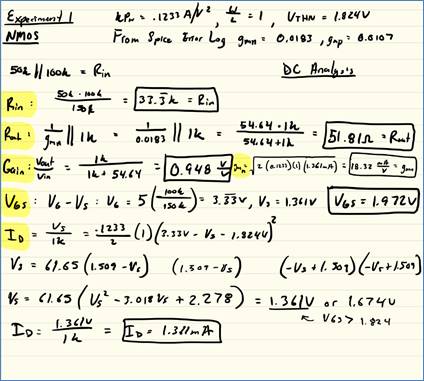 Experiment 1 KPn = .1233 A/V², W/L = 1, VTHN = 1.824V
NMOS From Spice Error Log gmn = 0.0183, gmp = 0.0107
50k || 100k = Rin DC Analysis
Rin: 50k · 100k / 150k = 33.3k = Rin
Rout: 1/gmn || 1k = 1/0.0183 || 1k = 54.64 · 1k / 54.64 + 1k = 51.81Ω = Rout
Gain: Vout/Vin = 1k / 1k + 54.64 = 0.948 V/V gmn: √2(0.1233)(1)(1.361mA) = 18.32 mA/V = gmn
VGS: VG - VS : VG = 5 (100k/150k) = 3.33V, VS = 1.361V VGS = 1.972V
ID = VS/1k = .1233/2 (1)(3.33V - VS - 1.824V)²
VS = 61.65 (1.509 - VS) (1.509 - VS) (-VS + 1.509)(-VS + 1.509)
VS = 61.65 (VS² - 3.018VS + 2.278) = 1.361V or 1.674V
↖ VGS > 1.824
ID: 1.361V / 1k = ID = 1.361mA